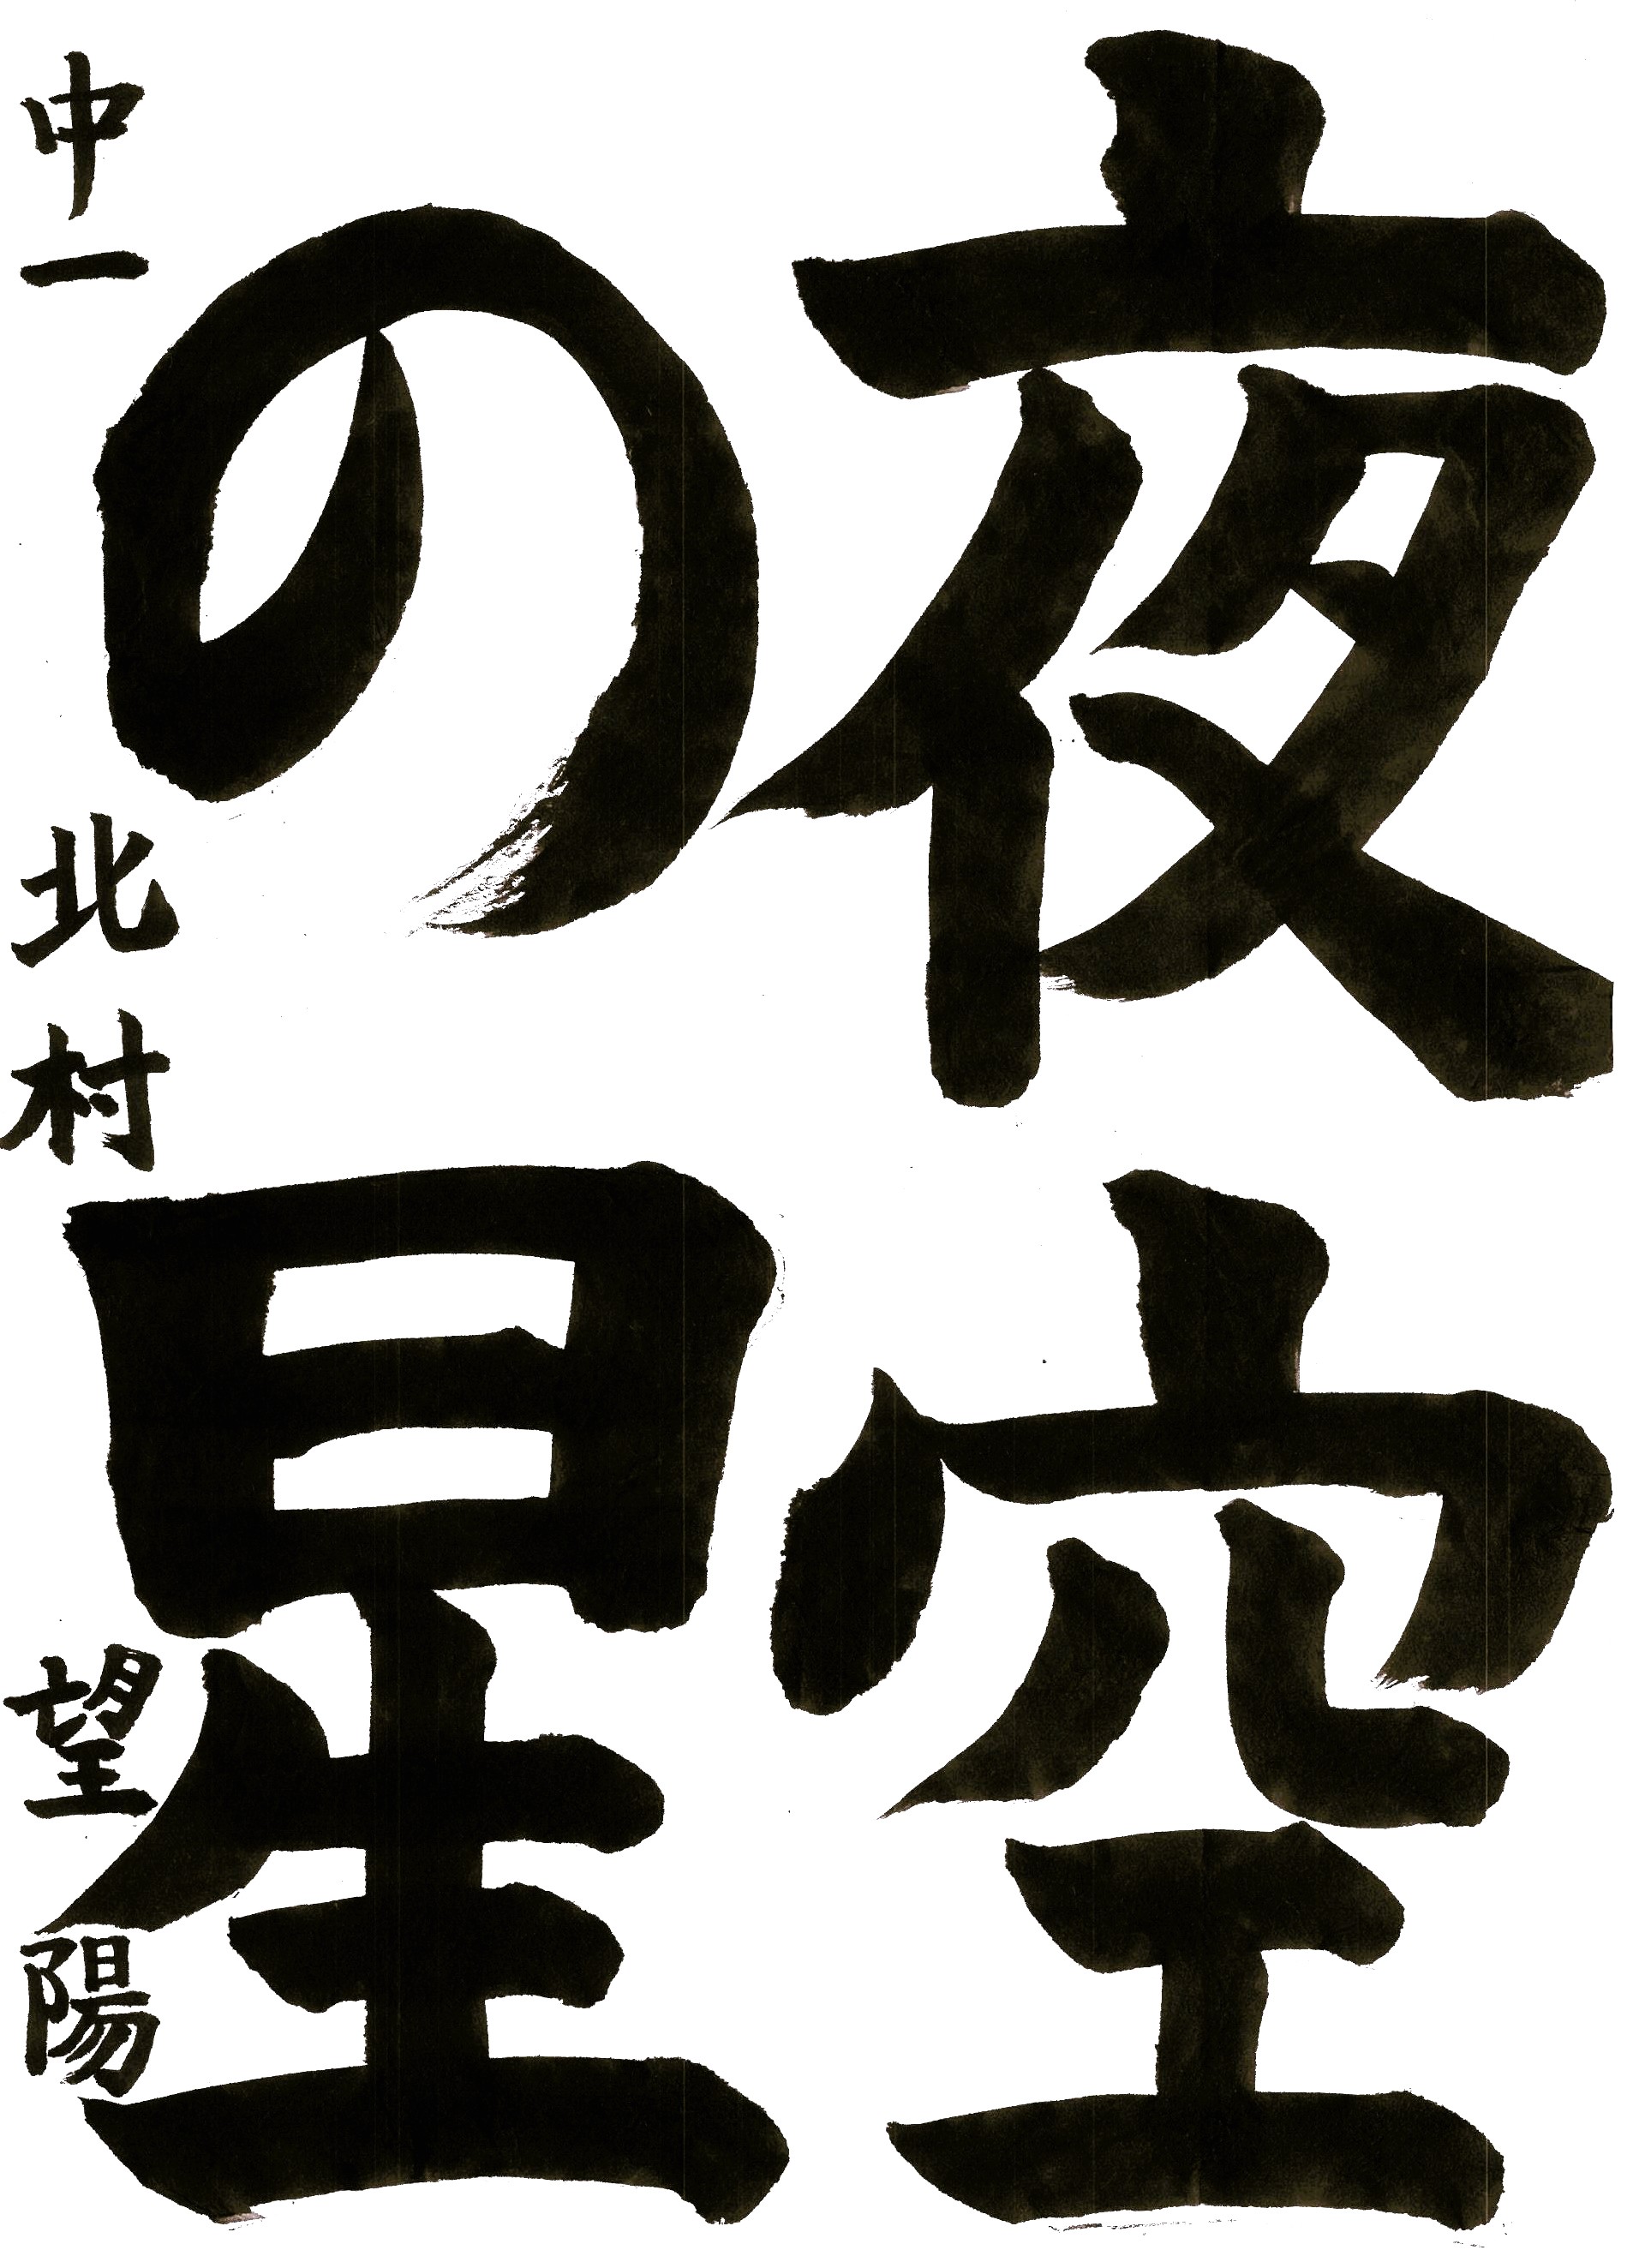 夜空
の星
中一 北村 望陽